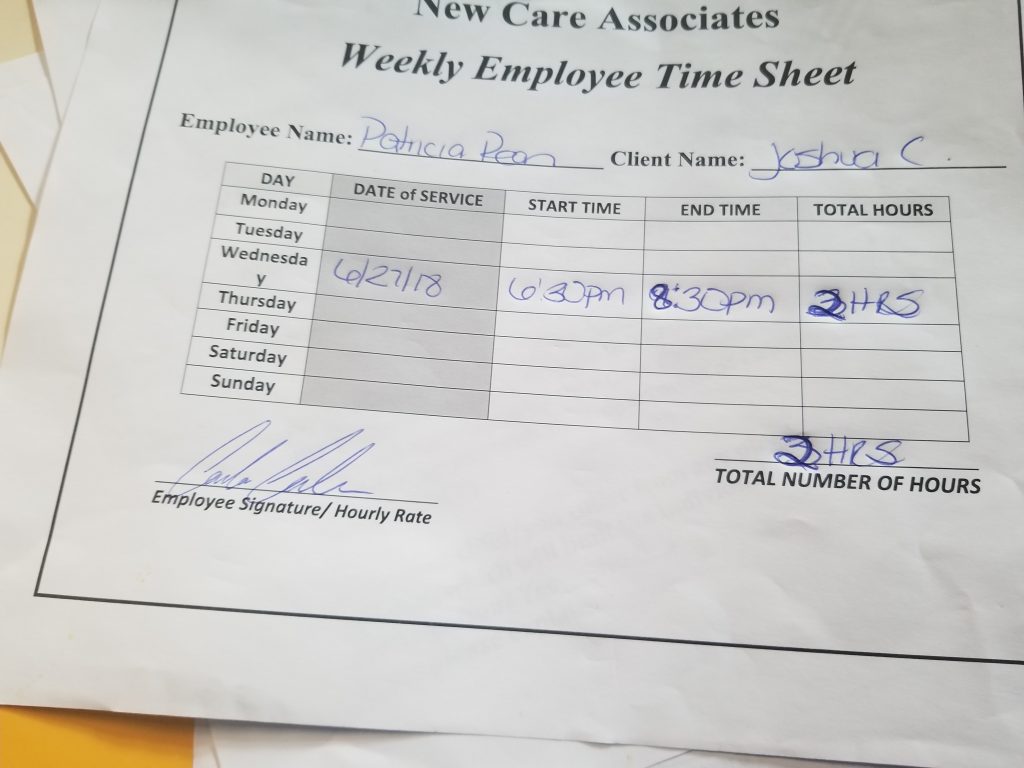 New Care Associates
Weekly Employee Time Sheet
Employee Name: Patricia Client Name: Joshua C.
DAY DATE of SERVICE START TIME END TIME TOTAL HOURS
Monday
Tuesday
Wednesda
y 6/27/18 6:30pm 8:30pm 2 HRS
Thursday
Friday
Saturday
Sunday
2 HRS
Employee Signature/ Hourly Rate TOTAL NUMBER OF HOURS